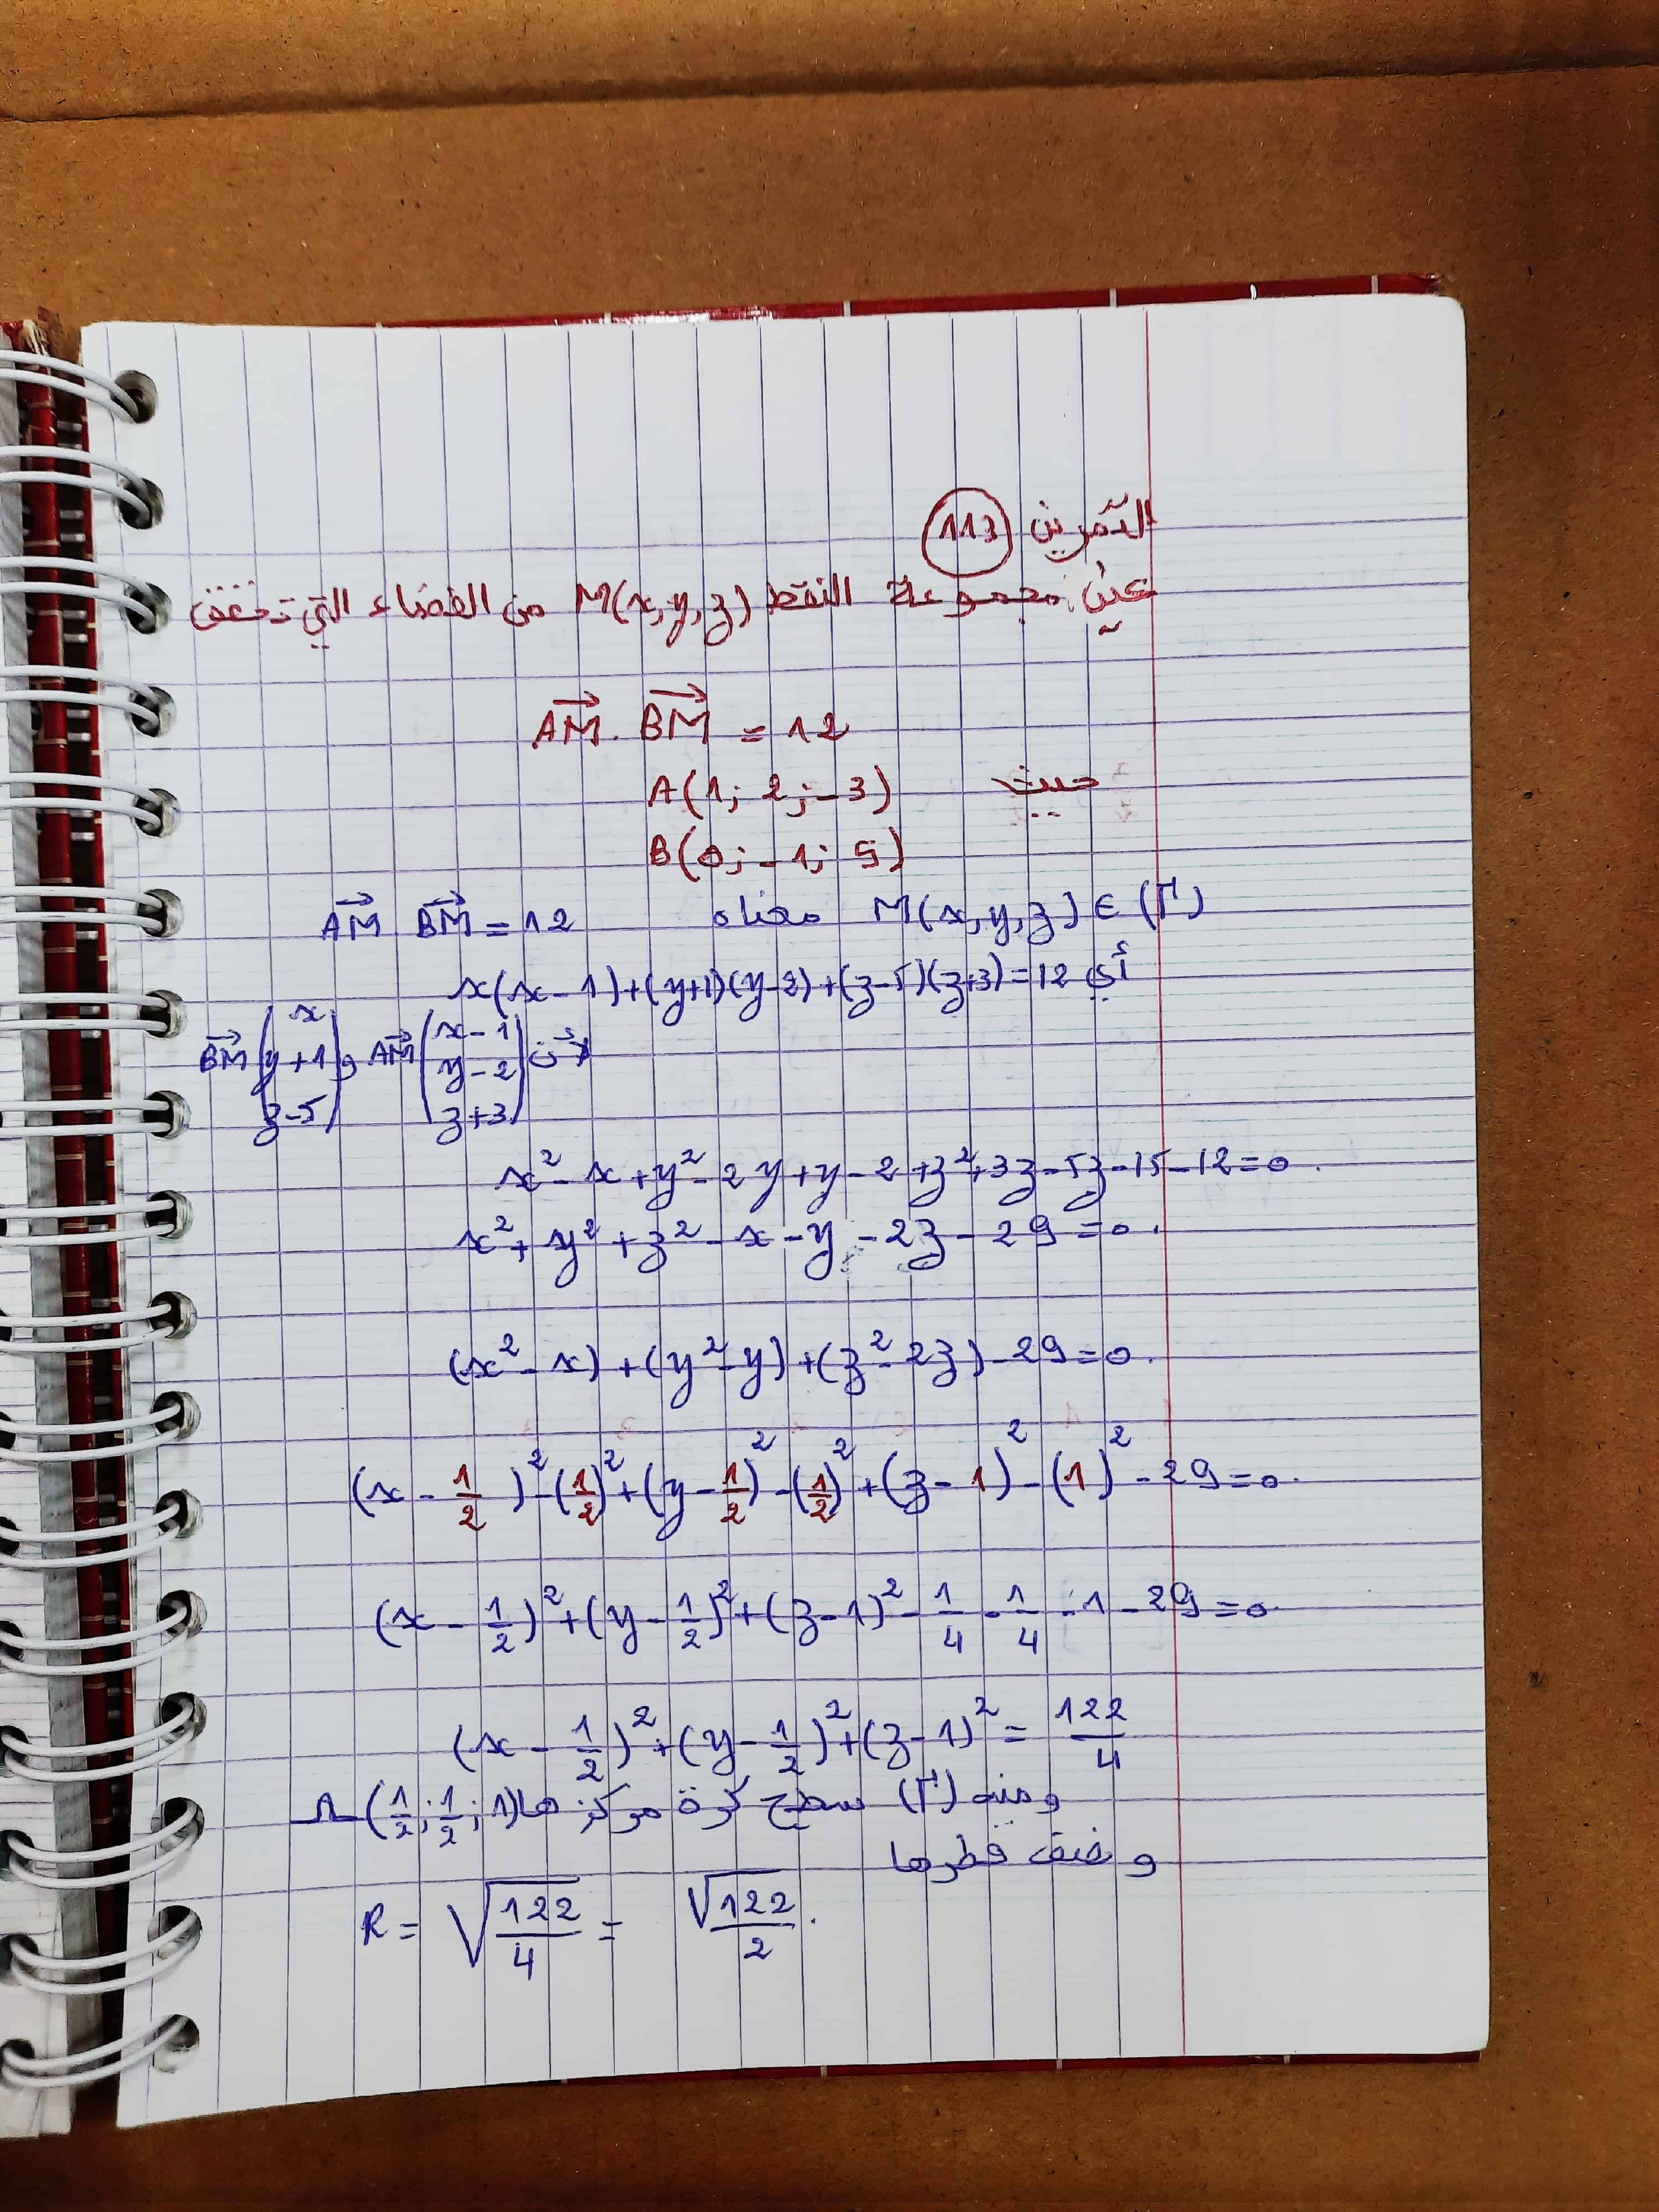 التمرين 113
عيّن مجموعة النقط M(x,y,z) من الفضاء التي تحقق
AM⃗ . BM⃗ = 12
حيث A(1; 2; -3)
B(0; -1; 5)
M(x,y,z) ∈ (Γ) معناه AM⃗ BM⃗ = 12
أي x(x-1)+(y+1)(y-2)+(z-5)(z+3)=12
لأن AM⃗ (x-1, y-2, z+3) و BM⃗ (x, y+1, z-5)
x²-x+y²-2y+y-2+z²+3z-5z-15-12=0.
x²+y²+z²-x-y-2z-29=0.
(x²-x)+(y²-y)+(z²-2z)-29=0.
(x-1/2)²-(1/2)²+(y-1/2)²-(1/2)²+(z-1)²-(1)²-29=0.
(x-1/2)²+(y-1/2)²+(z-1)²-1/4-1/4-1-29=0.
(x-1/2)²+(y-1/2)²+(z-1)²=122/4
ومنه (Γ) سطح كرة مركزها Ω(1/2; 1/2; 1)
و نصف قطرها
R = √(122/4) = √122/2.